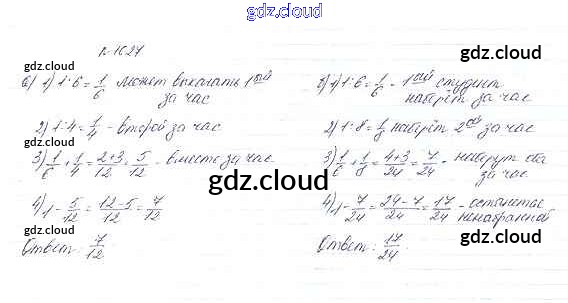 gdz.cloud
№1027
gdz.cloud
а) 1) 1:6 = 1/6 может выкачать 1ый
за час
2) 1:4 = 1/4 - второй за час
3) 1/6 + 1/4 = 2+3/12 = 5/12 - вместе за час
4) 1 - 5/12 = 12-5/12 = 7/12
Ответ: 7/12
gdz.cloud
б) 1) 1:6 = 1/6 - 1ый студент
наберёт за час
2) 1:8 = 1/8 наберёт 2ой за час
3) 1/6 + 1/8 = 4+3/24 = 7/24 - наберут оба
за час
4) 1 - 7/24 = 24-7/24 = 17/24 - останется
ненабранной
Ответ: 17/24.
gdz.cloud
gdz.cloud
gdz.cloud
gdz.cloud
gdz.cloud